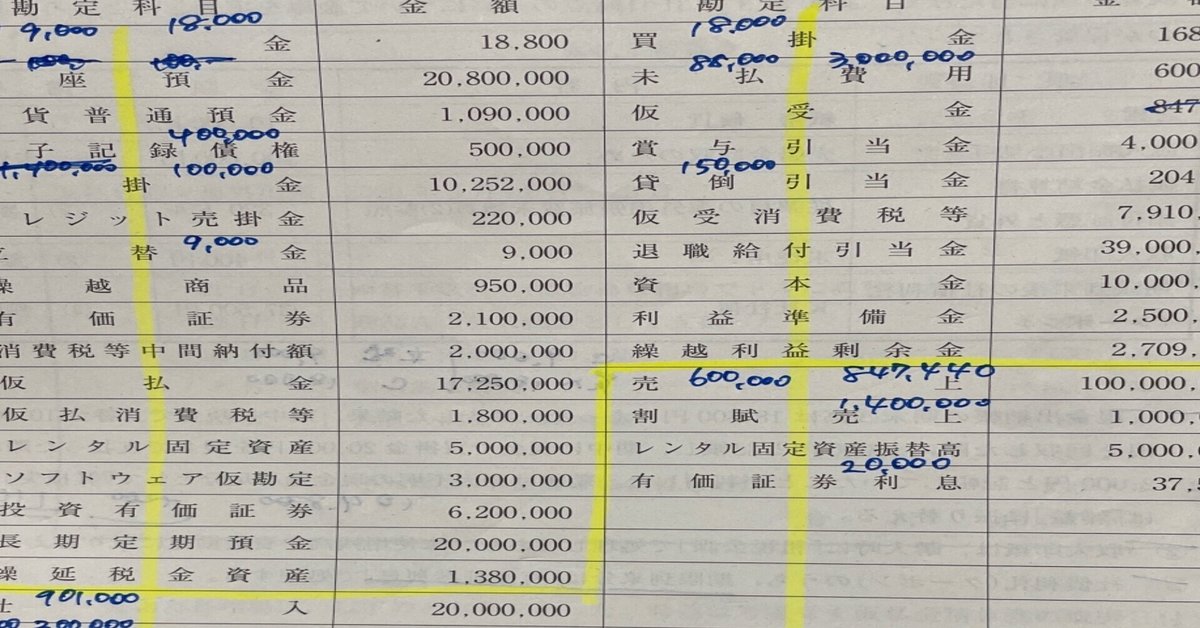 勘定科目 金額 勘定科目
9,000 18,000 18,000
金 18,800 買掛金 168
88,000 3,000,000
座預金 20,800,000 未払費用 600
貨普通預金 1,090,000 仮受金 847
400,000
子記録債権 500,000 賞与引当金 4,000
1,400,000 100,000 150,000
掛金 10,252,000 貸倒引当金 204
レジット売掛金 220,000 仮受消費税等 7,910,
9,000
替金 9,000 退職給付引当金 39,000,
繰越商品 950,000 資本金 10,000,
有価証券 2,100,000 利益準備金 2,500,
消費税等中間納付額 2,000,000 繰越利益剰余金 2,709,
600,000 847,440
仮払金 17,250,000 売上 100,000,
1,400,000
仮払消費税等 1,800,000 割賦売上 1,000,
レンタル固定資産 5,000,000 レンタル固定資産振替高 5,000,
20,000
ソフトウェア仮勘定 3,000,000 有価証券利息 37,5
投資有価証券 6,200,000
長期定期預金 20,000,000
繰延税金資産 1,380,000
901,000
仕入 20,000,000